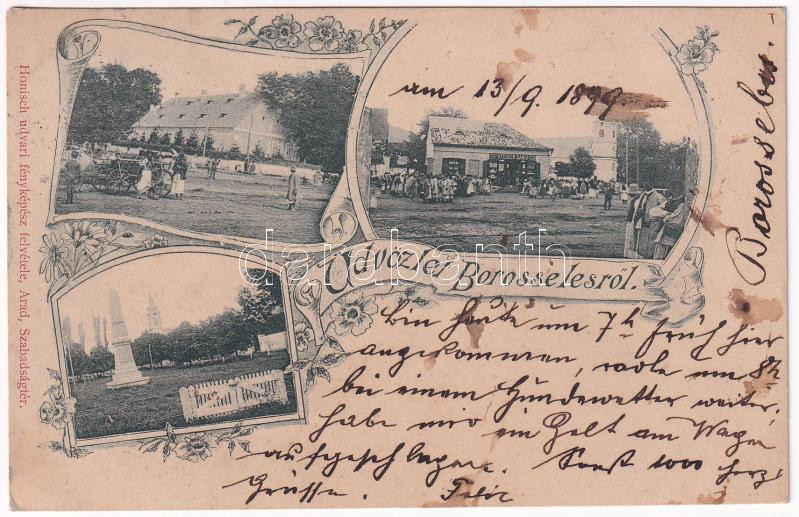 am 13/9. 1899.
Borossebes.
Üdvözlet Borosselesről.
Bin heute um 7h früh hier
angekommen, rolle um 8h
bei einem Hundewetter weiter.
habe mir ein Zelt am Wagen
aufgeschlagen. Sonst 1000 herz.
Grüsse. Felix
Honisch udvari fényképész felvétele, Arad, Szabadságtér.
darabanth